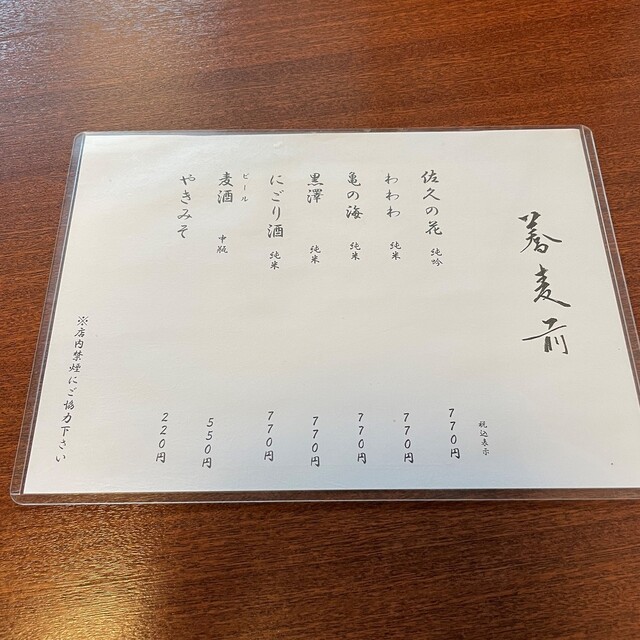 蕎麦前
税込表示
佐久の花 純吟 770円
わわわ 純米 770円
亀の海 純米 770円
黒澤 純米 770円
にごり酒 純米 770円
麦酒 ビール 中瓶 550円
やきみそ 220円
※店内禁煙にご協力下さい